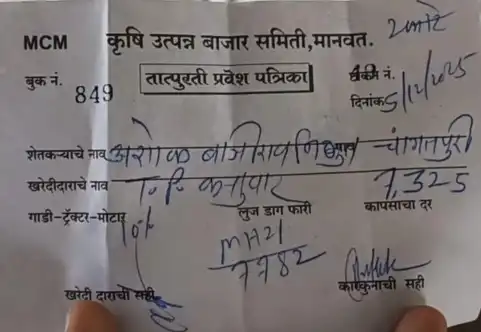 MCM कृषि उत्पन्न बाजार समिती, मानवत.
बुक नं. 849 तात्पुरती प्रवेश पत्रिका नं.
दिनांक 5/12/2025
शेतकऱ्याचे नाव अशोक बाजीराव चांगतपुरी
खरेदीदाराचे नाव 7,325
गाडी-ट्रॅक्टर-मोटार लुज डाग फारी कापसाचा दर
10%
MH21
7782
खरेदी दाराची सही कारकुनाची सही